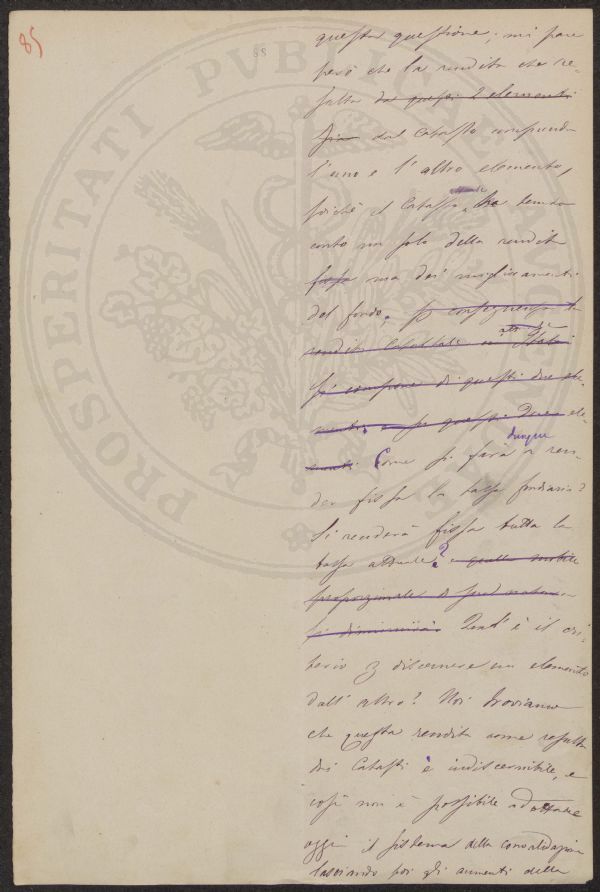 85
88
PROSPERITATI PVBLICAE
questa questione; mi pare
però che la rendita che re-
sulta dai questi 2 elementi
sia dal Catasto comprenda
l'uno e l'altro elemento,
poichè il Catasto attuale ha tenuto
conto non solo della rendita
fissa ma dei miglioramenti
del fondo. Per conseguenza la
rendita catastale in altri Stati
si compone di questi due ele-
menti, e se questi due ele-
menti. Come dunque si farà a ren-
der fissa la tassa fondiaria?
Si renderà fissa tutta la
tassa attuale? e quella mobile
proporzionale
si diminuirà. Qual'è il cri-
terio per discernere un elemento
dall'altro? Noi troviamo
che questa rendita come resulta
dai Catasti è indiscernibile, e
così non è possibile adottare
oggi il sistema della consolidazione
lasciando poi gli aumenti della